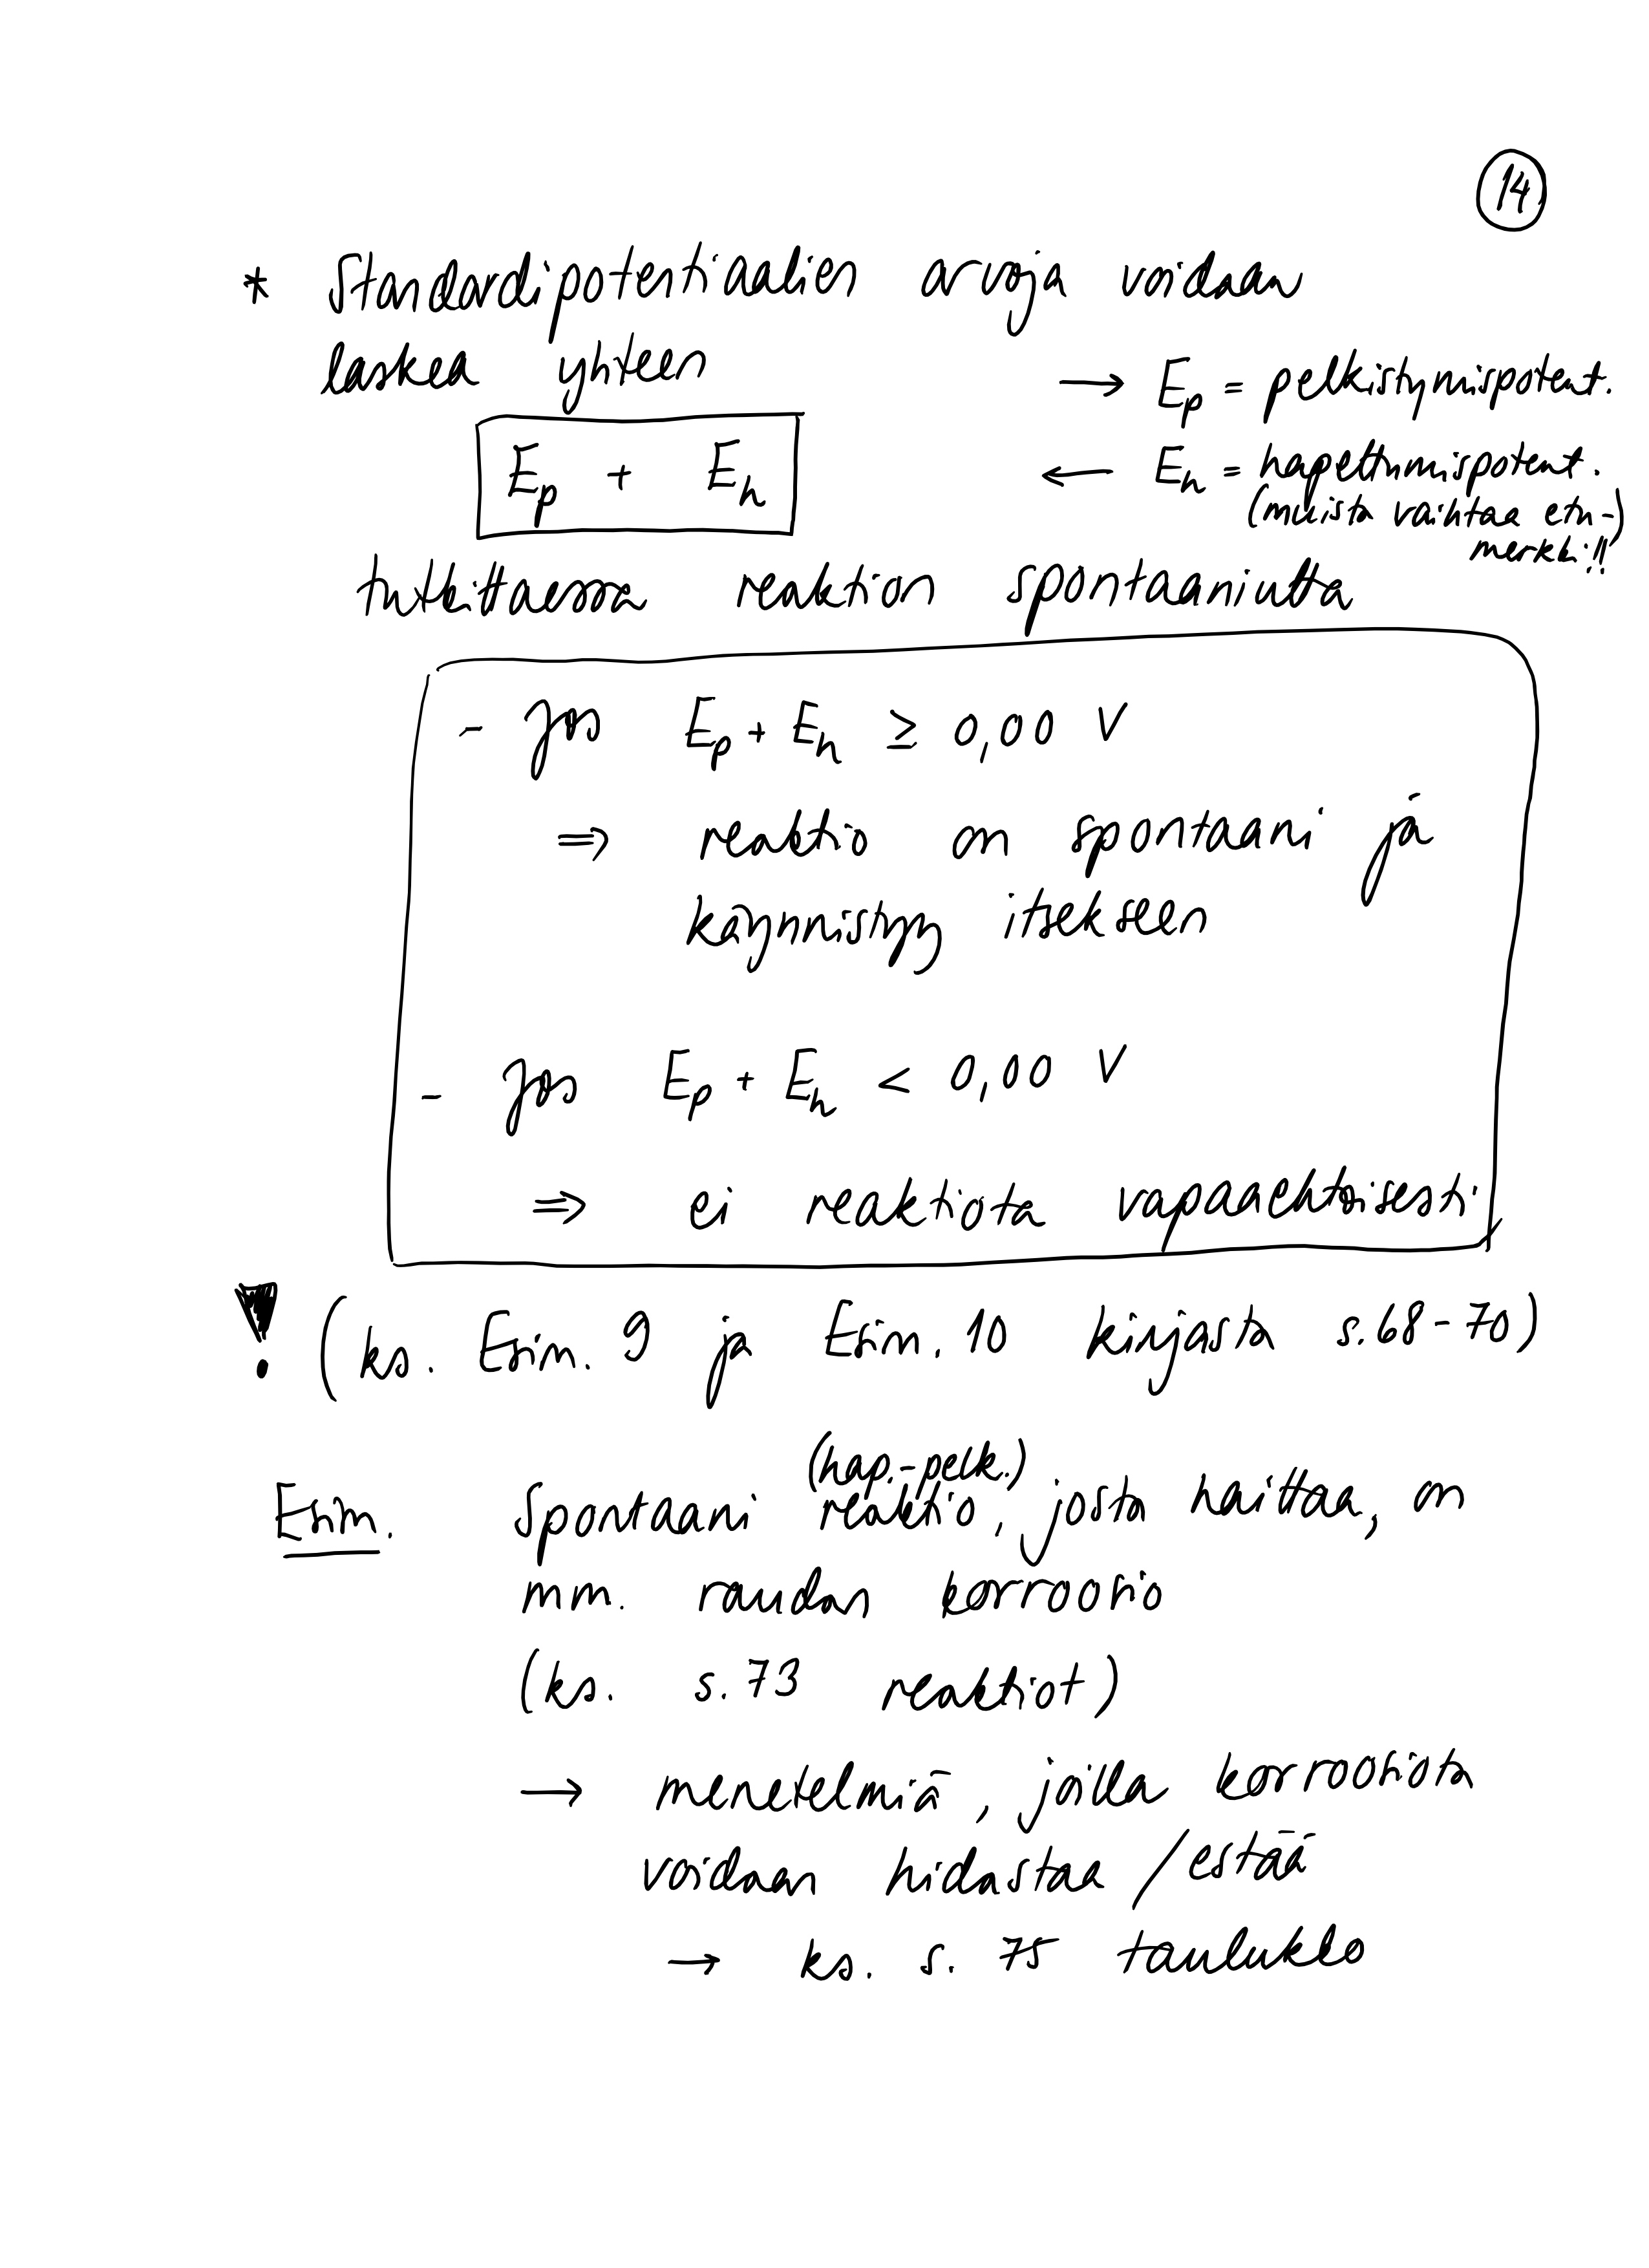 14
* Standardipotentiaalien arvoja voidaan
laskea yhteen
→ Ep = pelkistymispotent.
Ep + Eh
← Eh = hapettumispotent.
(muista vaihtaa etu-)
merkki!!
tutkittaessa reaktion spontaaniutta
- Jos Ep + Eh ≥ 0,00 V
⇒ reaktio on spontaani ja
käynnistyy itsekseen
- Jos Ep + Eh < 0,00 V
⇒ ei reaktiota vapaaehtoisesti
! (ks. Esim. 9 ja Esim. 10 kirjasta s.68-70)
(hap.-pelk.)
Esim. Spontaani reaktio, josta haittaa, on
mm. raudan korroosio
(ks. s.73 reaktiot)
→ menetelmiä, joilla korroosiota
voidaan hidastaa / estää
→ ks. s. 75 taulukko